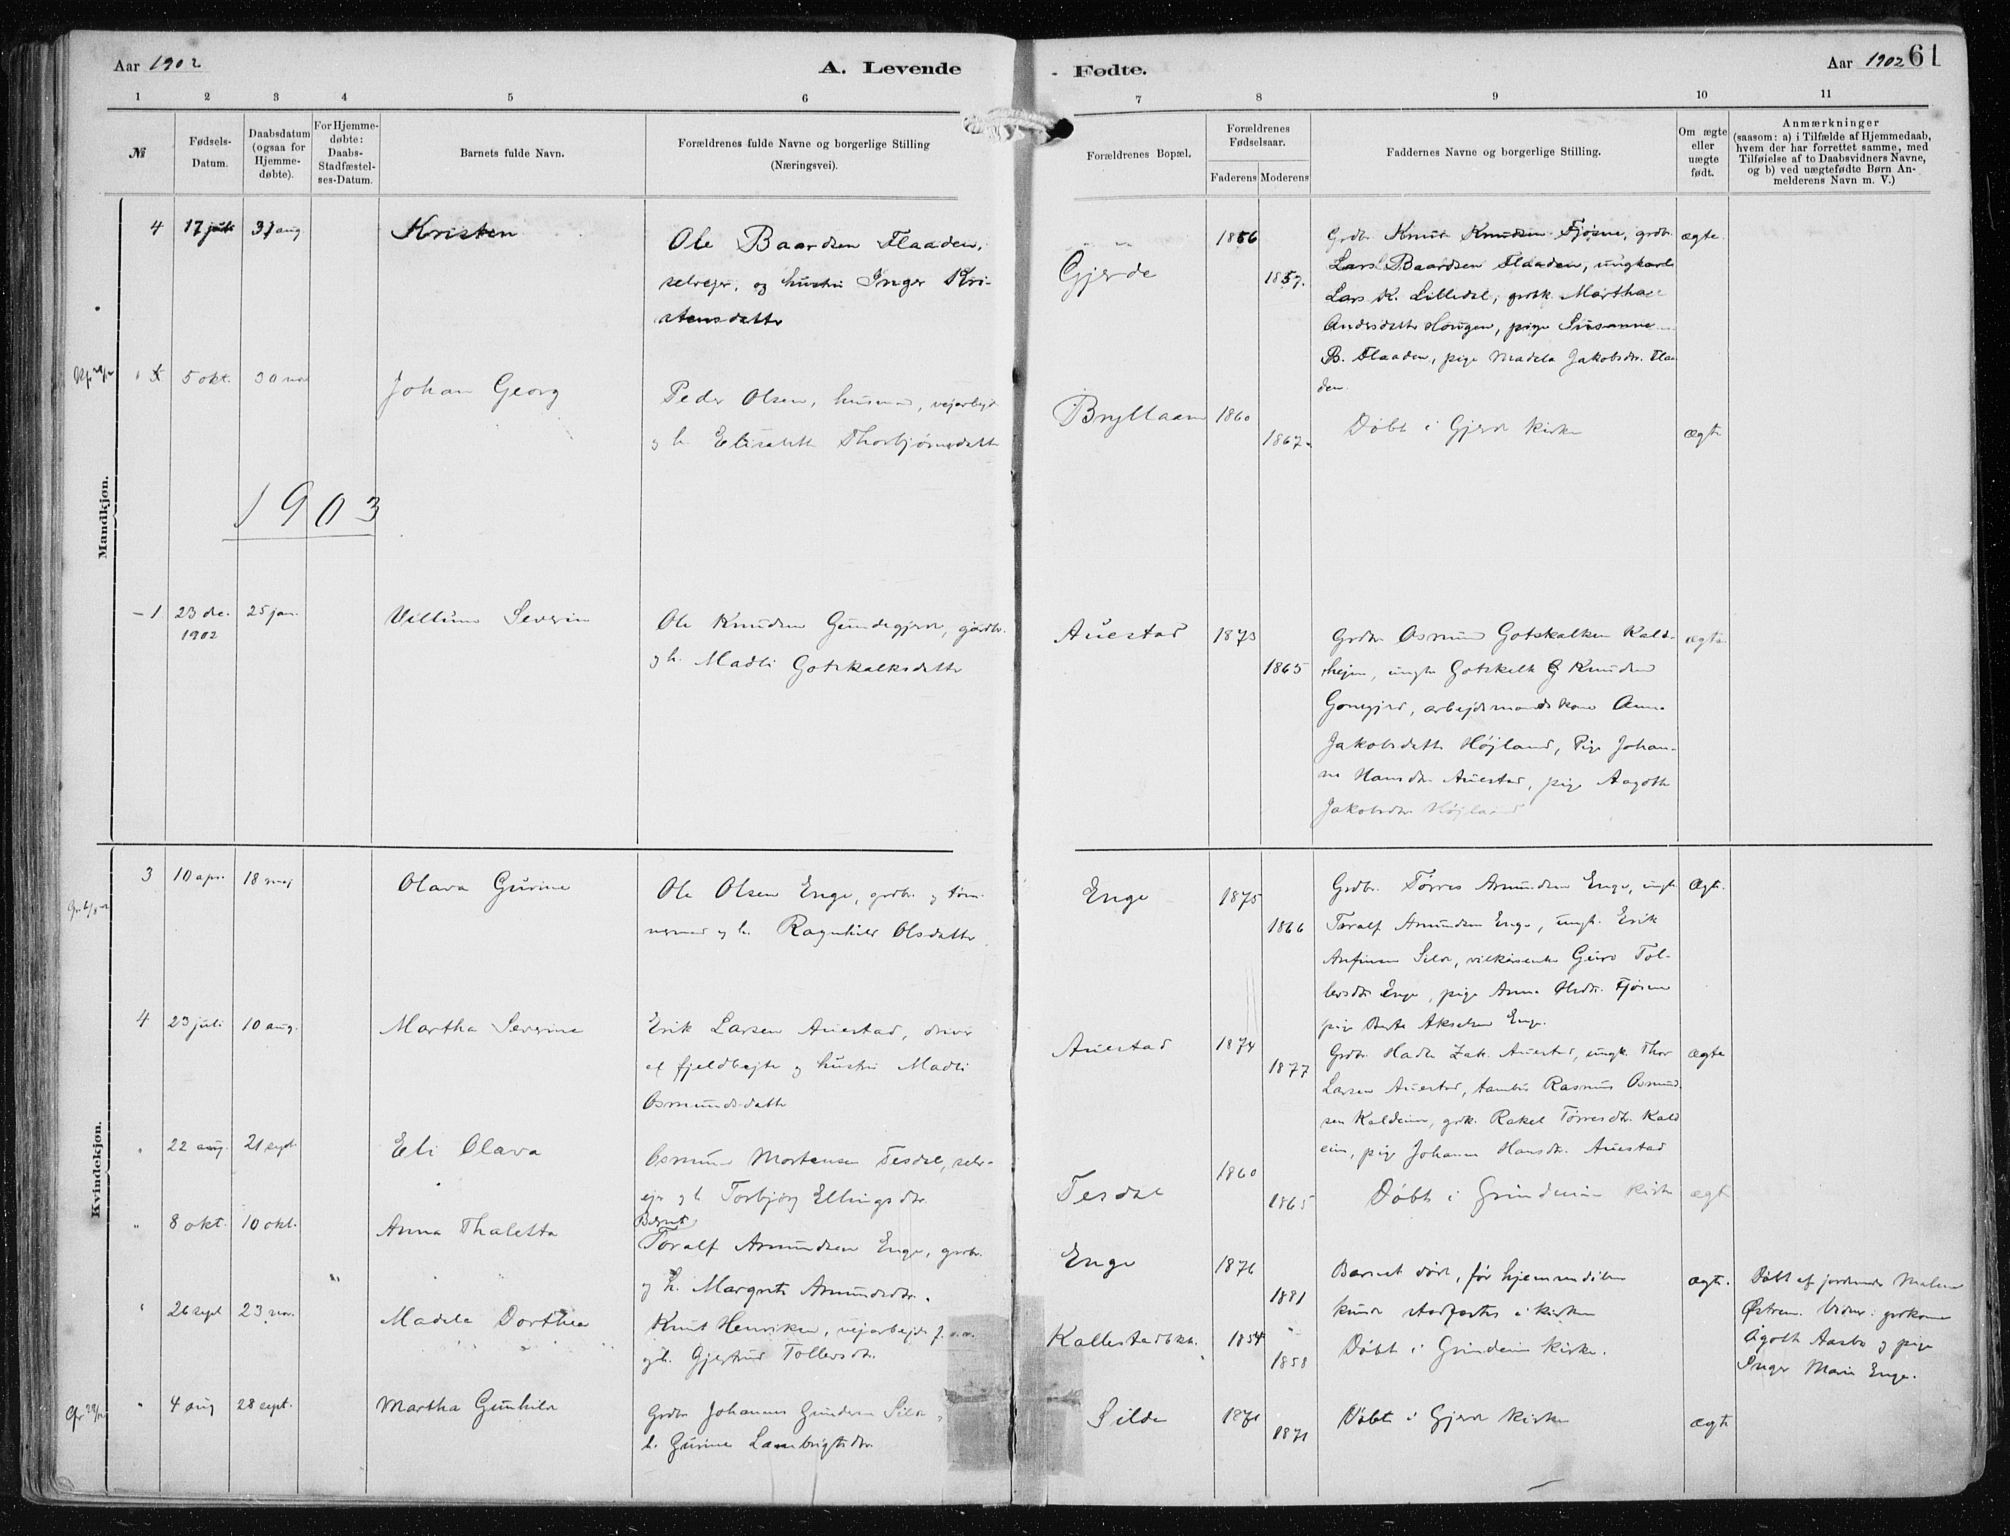 Aar 1902
A. Levende
- Fødte.
Aar 1902
61
1 2 3 4 5 6 7 8 9 10 11
№
Fødsels-
Datum.
Daabsdatum
(ogsaa for
Hjemme-
døbte).
For Hjemme-
døbte:
Daabs-
Stadfæstel-
ses-Datum.
Barnets fulde Navn.
Forældrenes fulde Navne og borgerlige Stilling
(Næringsvei).
Forældrenes Bopæl.
Forældrenes
Fødselsaar.
Faderens Moderens
Faddernes Navne og borgerlige Stilling.
Om ægte
eller
uægte
født.
Anmærkninger
(saasom: a) i Tilfælde af Hjemmedaab,
hvem der har forrettet samme, med
Tilføielse af to Daabsvidners Navne,
og b) ved uægtefødte Børn An-
melderens Navn m. V.)
Mandkjøn.
4 17 juli 31 aug Kristen
Ole Baardsen Flaaden,
selvejer, og hustru Inger Kri-
stensdatter
Gjerde
1856
1857.
Grdbr. Knut Knudsen Fjøsne, grdbr.
Lars Baardsen Flaaden, ungkarl
Lars K. Lilledal, grdk. Martha
Andersdatter Hougen, pige Susanne
B. Flaaden, pige Madela Jakobsdr. Flaa-
den.
ægte
5 okt. 30 nov Johan Georg
Peder Olsen, husmand, vejarbejd
og h. Elisabeth Thorbjørnsdatter
Bryllaam
1860
1867
Døbt i Gjerde kirke
ægte
1903
- 1 23 dec. 1902 25 jan. Villum Severin
Ole Knudsen Gundegjerde, gårdbr.
og h. Madli Gotskalksdatter
Auestad
1873
1865
Grdbr. Osmund Gotskalksen Kald-
hejm, ungk. Gotskalk G Knudsen
Gonegjerd, arbejdsmands kone Anna
Jakobsdatter Højland, Pige Johan-
ne Hansdtr. Auestad, pige Aagoth
Jakobsdtr. Højland
ægte
Kvindekjøn.
3 10 apr. 18 maj Olava Gurine
Ole Olsen Enge, grdbr. og tøm-
mermand og h. Ragnhild Olsdatter
Enge
1875
1866
Grdbr. Tørres Amundsen Enge, ungk.
Toralf Amundsen Enge, ungk. Erik
Anfinsen Silde, vilkårsenke Guro Tol-
lersdtr. Enge, pige Anna Fjøsne
pige Berte Akselsen Enge.
Ægte.
4 23 juli 10 aug. Martha Severine
Erik Larsen Auestad, driver
et fjeldbejte og hustru Madli
Osmundsdatter
Auestad
1874
1877
Grdbr. Hadle Zak. Auestad, ungk. Thor
Larsen Auestad, tambur Rasmus Osmund-
sen Kaldeim, grdk. Rakel Tørresdtr. Kald-
eim, pige Johanne Hansdtr. Auestad
ægte
" 22 aug. 21 sept. Eli Olava
Osmund Mortensen Tesdal, selv-
ejer og h. Torbjørg Ellingsdtr.
Tesdal
1860
1865
Døbt i Grindeim kirke
ægte
" 8 okt. 10 okt. Anna Thaletta
Bernt
Toralf Amundsen Enge, grdbr.
og h. Margrete Amundsdtr.
Enge
1876
1881
Barnet død, før hjemmedåben
kunde stadfæstes i kirken
ægte.
Døbt af jordmoder Malene
Østrem. Vidner: grdkone
Agoth Aasbø og pige
Inger Marie Enge.
" 26 sept 23 nov. Madela Dorthea
Knut Henriksen, vejarbejder
og h. Gjertrud Tollersdtr.
Kallestadbkk.
1854
1858
"
Døbt i Grindeim kirke.
" 4 aug 28 sept. Martha Gunhild
Grdbr. Johannes Gundersen Silde,
h. Gurine Lambrigtsdtr.
Silde
1871
1871
Døbt i Gjerde kirke
ægte